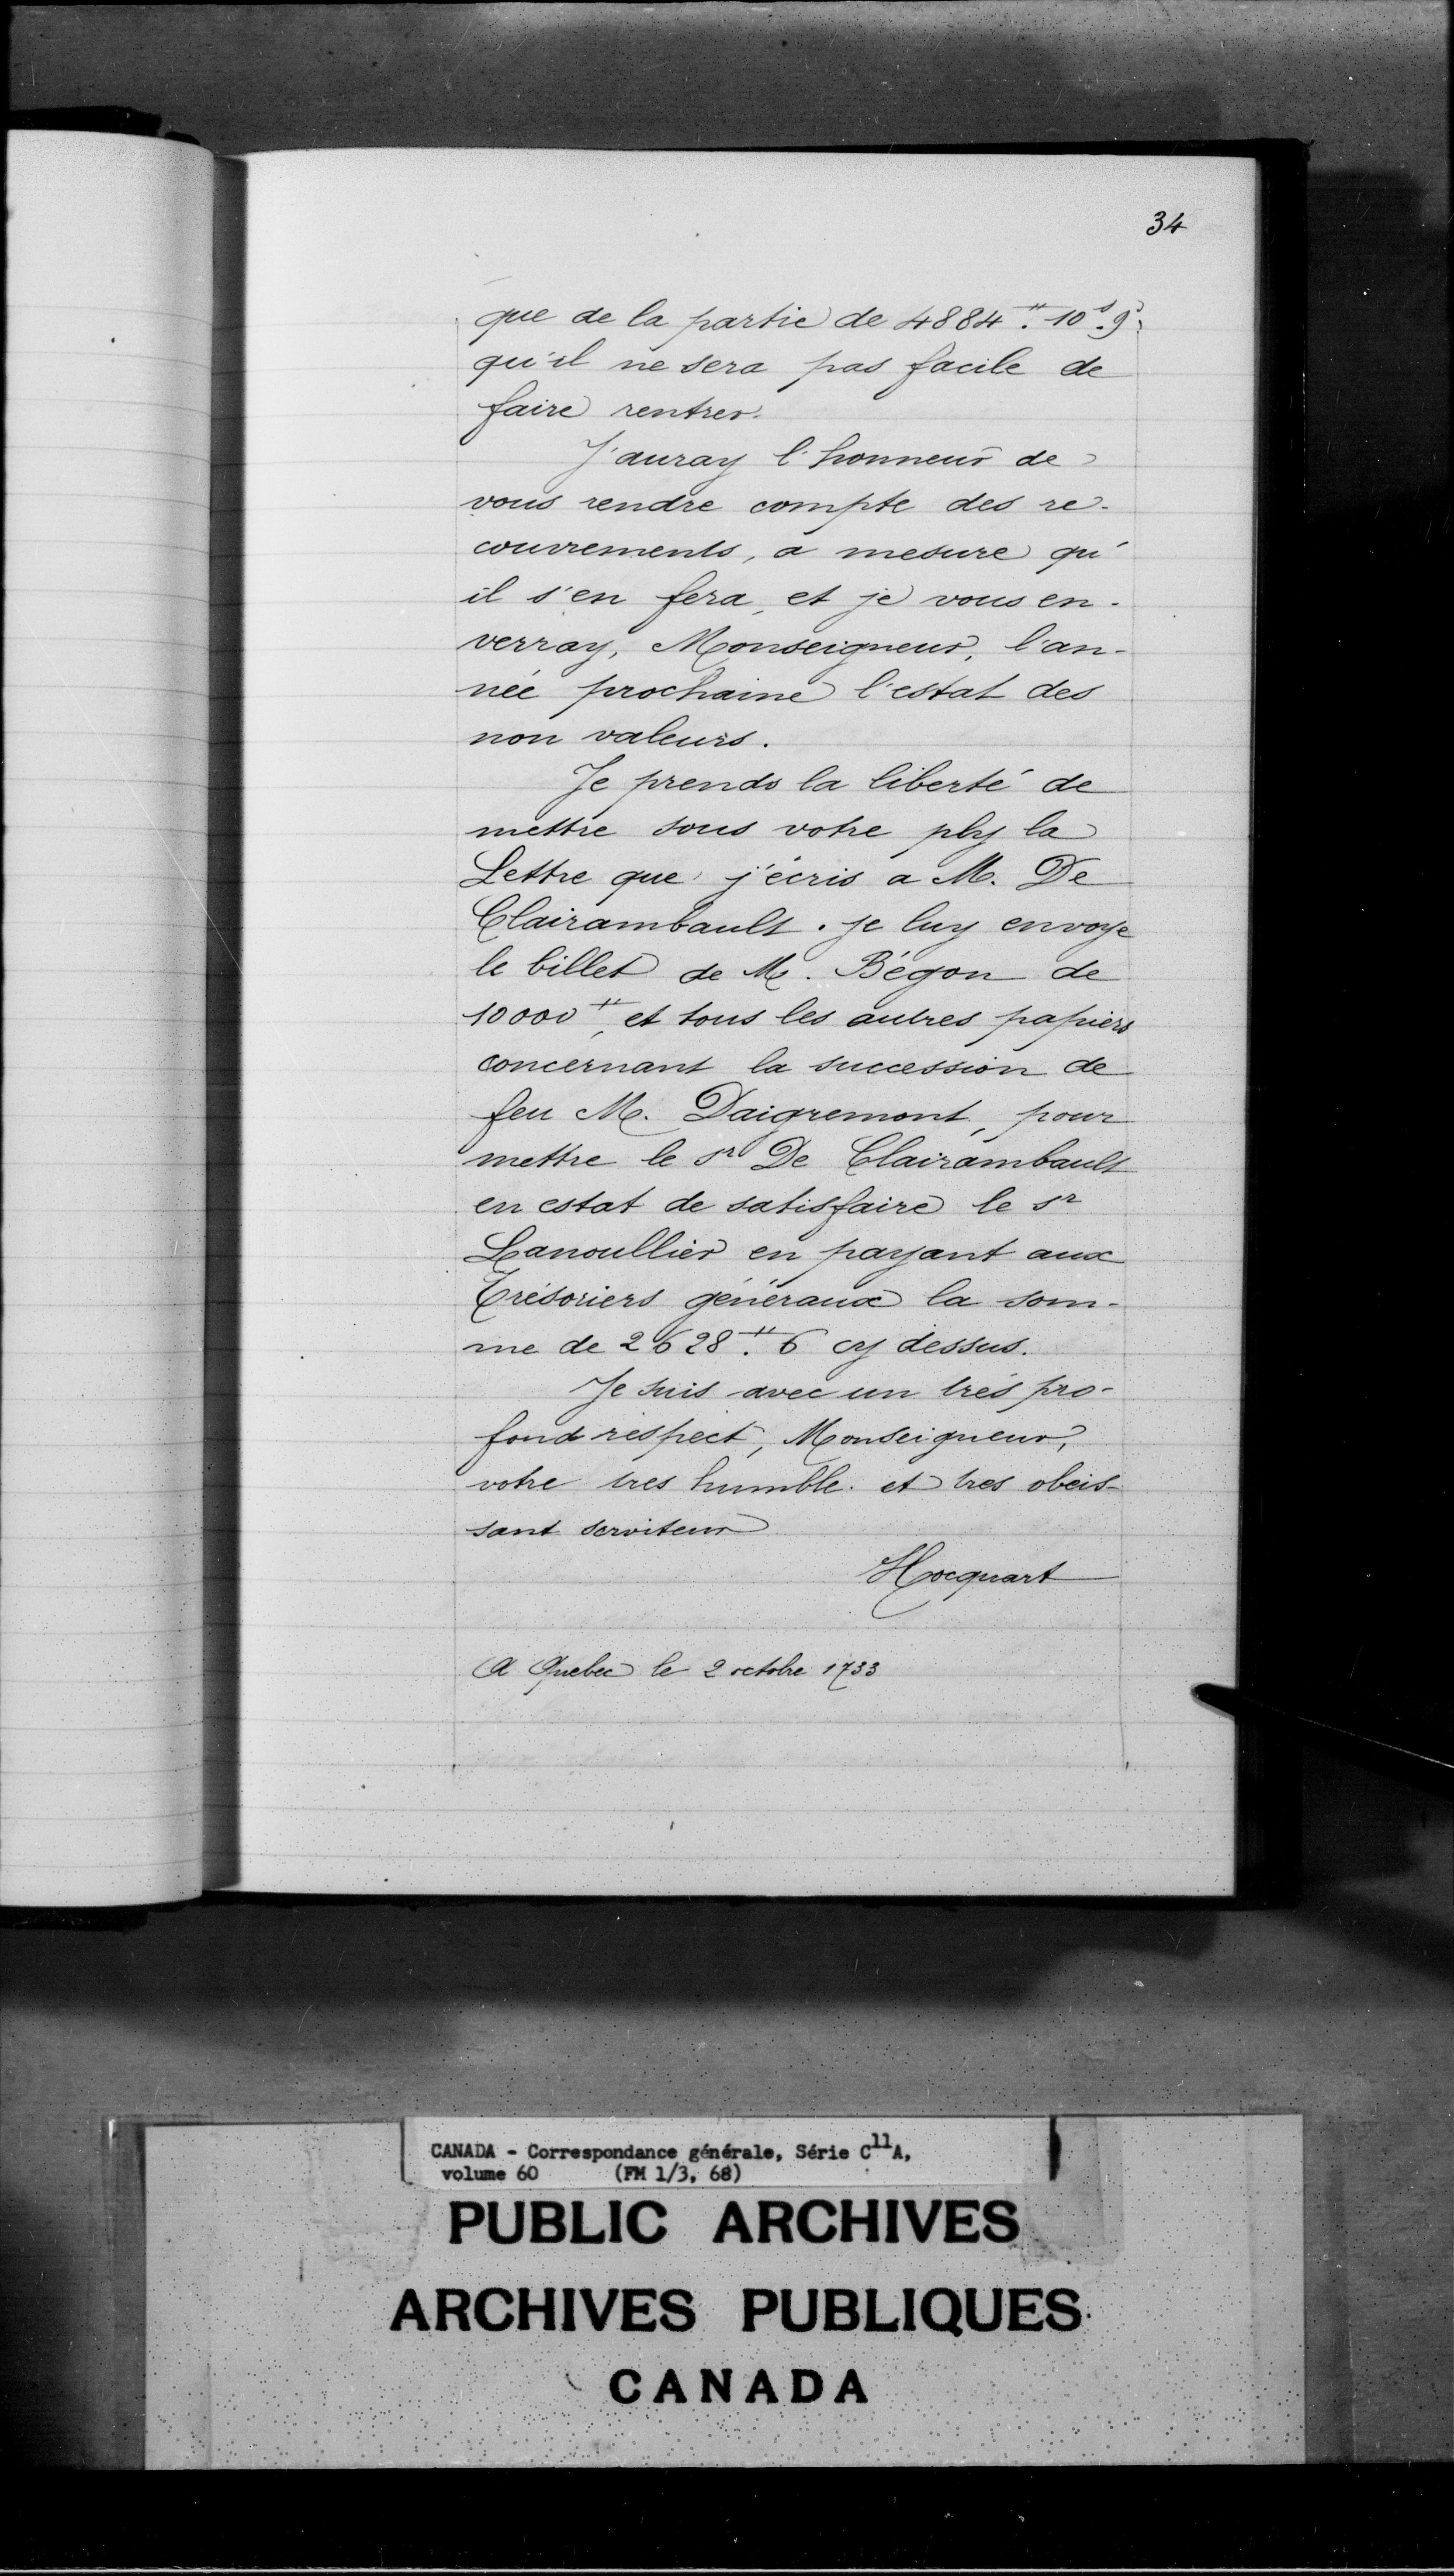 34
que de la partie de 4884ᴴ. 10ˢ. 9ᵈ.
qu'il ne sera pas facile de
faire rentrer.
J'auray l'honneur de
vous rendre compte des re-
couvrements, à mesure qu'
il s'en fera, et je vous en-
verray, Monseigneur, l'an-
née prochaine l'estat des
non valeurs.
Je prends la liberté de
mettre sous votre ply la
Lettre que j'écris a M. De
Clairambault. je luy envoye
le billet de M. Bégon de
10000ᴴ, et tous les autres papiers
concernant la succession de
feu M. Daigremont, pour
mettre le sʳ De Clairambault
en estat de satisfaire le sʳ
Lanoullier en payant aux
Trésoriers généraux la som-
me de 2628ᴴ. 6 cy dessus.
Je suis avec un très pro-
fond respect, Monseigneur,
votre tres humble et tres obeis-
sant serviteur
Hocquart
A Quebec le 2 octobre 1733
CANADA - Correspondance générale, Série C¹¹A,
volume 60 (FM 1/3, 68)
PUBLIC ARCHIVES
ARCHIVES PUBLIQUES
CANADA